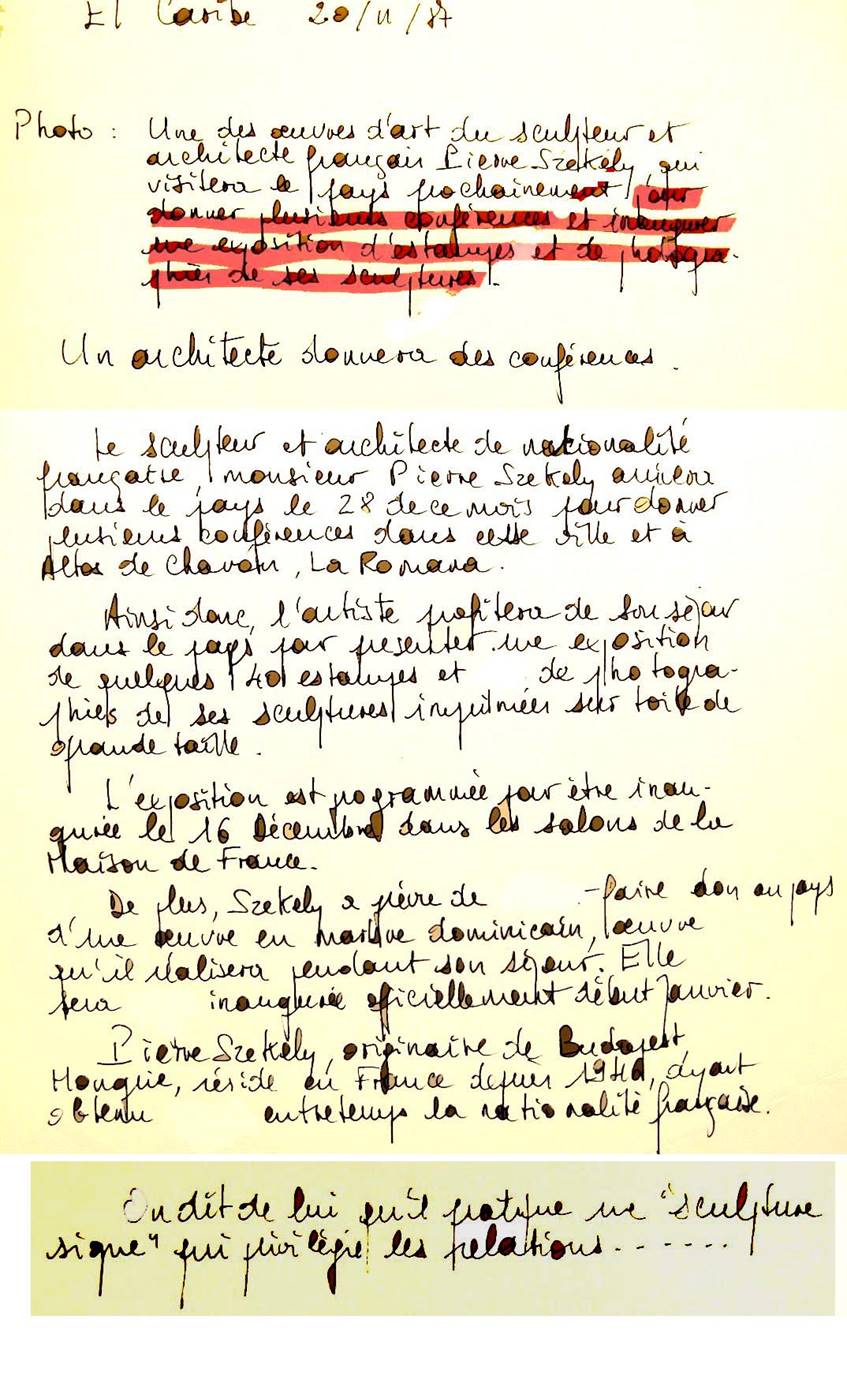 El Caribe 20/11/87
Photo : Une des œuvres d'art du sculpteur et
architecte français Pierre Szekely qui
visitera le pays prochainement pour
donner plusieurs conférences et inaugurer
une exposition d'estampes et de photogra-
phies de ses sculptures.
Un architecte donnera des conférences.
Le sculpteur et architecte de nationalité
française, monsieur Pierre Szekely arrivera
dans le pays le 28 de ce mois pour donner
plusieurs conférences dans cette ville et à
Altos de Chavón, La Romana.
Ainsi donc, l'artiste profitera de son séjour
dans le pays pour présenter une exposition
de quelques 40 estampes et de photogra-
phies de ses sculptures imprimées sur toile de
grande taille.
L'exposition est programmée pour être inau-
gurée le 16 Décembre dans les salons de la
Maison de France.
De plus, Szekely a prévu de - faire don au pays
d'une œuvre en marbre dominicain, œuvre
qu'il réalisera pendant son séjour. Elle
sera inaugurée officiellement début Janvier.
Pierre Szekely, originaire de Budapest,
Hongrie, réside en France depuis 1946, ayant
obtenu entretemps la nationalité française.
On dit de lui qu'il pratique une "sculpture
signe" qui privilégie les relations.......